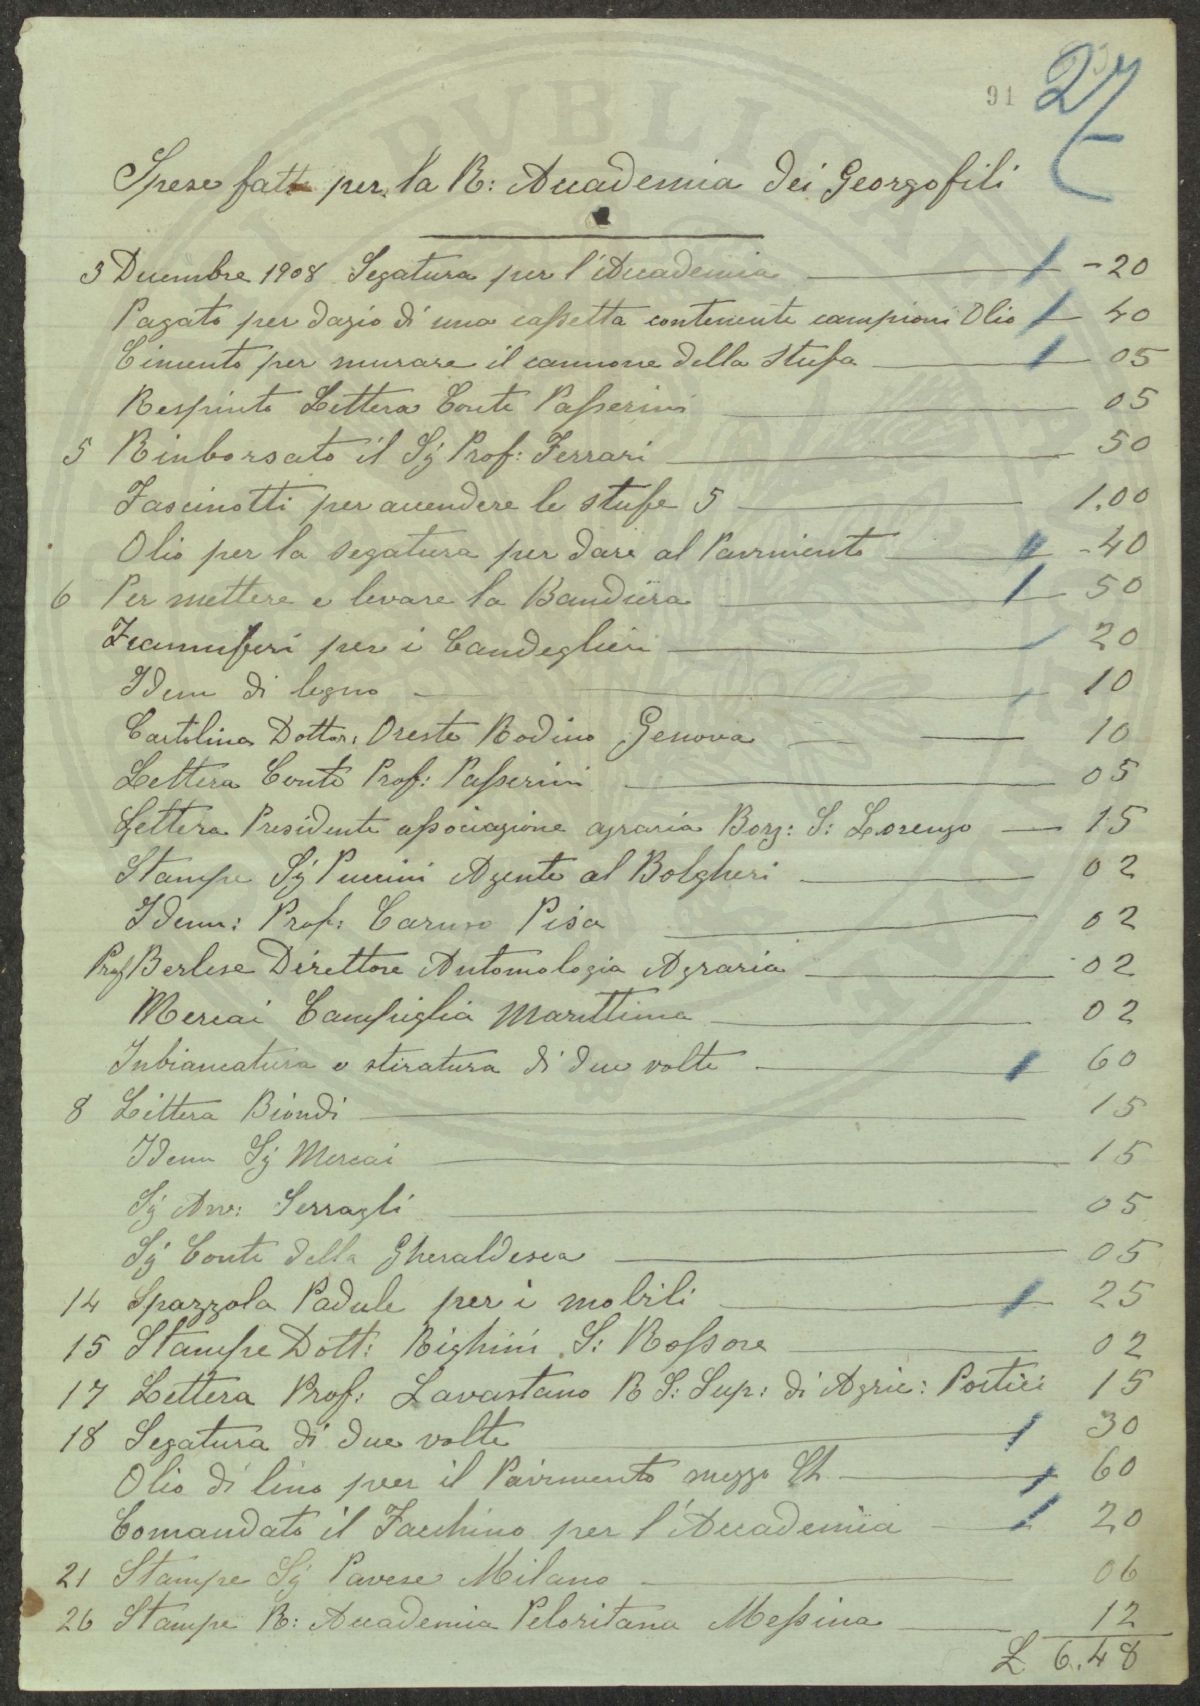 91
27
Spese fatte per la R: Accademia dei Georgofili
3 Decembre 1908 Segatura per l'Accademia - 20
Pagato per dazio di una cassetta contenente campioni Olio 40
Cimento per murare il cannone della Stufa 05
Respinto Lettera Conte Passerini 05
5 Rinborsato il Sg Prof: Ferrari 50
Fascinotti per accendere le stufe 5 1.00
Olio per la segatura per dare al Pavimento - 40
6 Per mettere e levare la Bandiera 50
per i Candeglieri 20
Idem di legno 10
Cartolina Dottor: Oreste Bodino Genova 10
Lettera Conte Prof: Passerini 05
Lettera Presidente associazione agraria Borg: S: Lorenzo 15
Stampe Sg Puccini Agente al Bolgheri 02
Idem: Prof: Caruso Pisa 02
Prof Berlese Direttore Antomologia Agraria 02
Mercai Campiglia Marittima 02
Inbiancatura e stiratura di due volte 60
8 Lettera Biondi 15
Idem Sg Mercai 15
Sg Avv: Serragli 05
Sg Conte della Gheraldesca 05
14 Spazzola Padule per i mobili 25
15 Stampe Dott: Righini S: Rossore 02
17 Lettera Prof: Savastano R S: Sup: di Agric: Portici 15
18 Segatura di due volte 30
Olio di lino per il Pavimento mezzo 60
Comandato il Facchino per l'Accademia 20
21 Stampe Sg Pavese Milano 06
26 Stampe R: Accademia Peloritana Messina 12
L 6.48